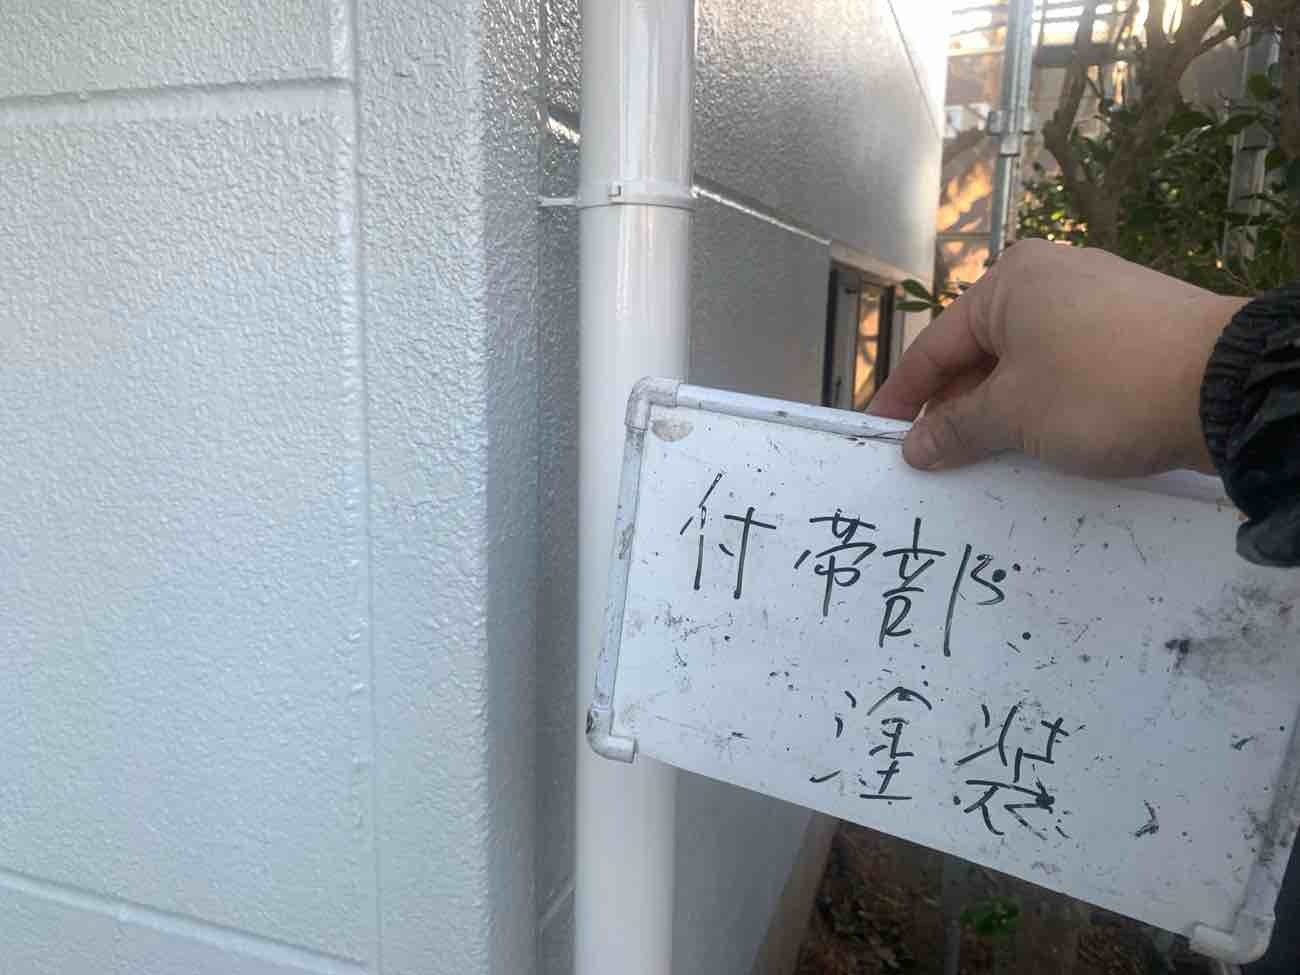 付帯部
塗装